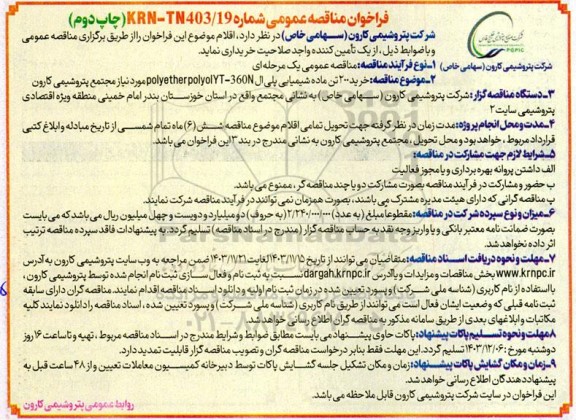 فراخوان مناقصه عمومی شماره KRN-TN403/19 (چاپ دوم)
شرکت پتروشیمی کارون (سهامی خاص) در نظر دارد، اقلام موضوع این فراخوان را از طریق برگزاری مناقصه عمومی
و با ضوابط ذیل، از یک تأمین کننده واجد صلاحیت خریداری نماید.
PGPIC
شرکت پتروشیمی کارون (سهامی خاص)
۱-نوع فرآیند مناقصه: مناقصه عمومی یک مرحله ای
۲-موضوع مناقصه: خرید ۲۰۰ تن ماده شیمیایی پلی ال polyetherpolyol YT-360N مورد نیاز مجتمع پتروشیمی کارون
۳-دستگاه مناقصه گزار: شرکت پتروشیمی کارون (سهامی خاص) به نشانی مجتمع واقع در استان خوزستان بندر امام خمینی منطقه ویژه اقتصادی
پتروشیمی سایت ۲
۴-مدت و محل انجام پروژه: مدت زمان در نظر گرفته جهت تحویل تمامی اقلام موضوع مناقصه شش (۶) ماه تمام شمسی از تاریخ مبادله و ابلاغ کتبی
قرارداد مربوط، خواهد بود و محل تحویل، مجتمع پتروشیمی کارون به نشانی مندرج در بند ۳ این فراخوان می باشد.
۵-شرایط لازم جهت مشارکت در مناقصه:
الف داشتن پروانه بهره برداری و یا مجوز فعالیت
ب حضور و مشارکت در فرآیند مناقصه بصورت مشارکت دو یا چند مناقصه گر، ممنوع می باشد.
پ مناقصه گرانی که دارای هیئت مدیره مشترک می باشند، بصورت همزمان نمی توانند در فرآیند مناقصه شرکت نمایند.
۶-میزان و نوع سپرده شرکت در مناقصه: مقطوعاً مبلغ (به عدد) ۲/۲۴۰/۰۰۰/۰۰۰ (به حروف) دو میلیارد و دویست و چهل میلیون ریال می باشد که می بایست
بصورت ضمانت نامه معتبر بانکی و یا واریز وجه نقد به حساب مناقصه گزار (مندرج در اسناد مناقصه) تسلیم گردد. به پیشنهادات فاقد سپرده مناقصه ترتیب
اثر داده نخواهد شد.
۷-مهلت و نحوه دریافت اسناد مناقصه: متقاضیان می توانند از تاریخ ۱۴۰۳/۱۱/۱۵ لغایت ۱۴۰۳/۱۱/۲۱ ضمن مراجعه به وب سایت پتروشیمی کارون به آدرس
www.krnpc.ir بخش مناقصات و مزایدات و یا آدرس dargah.krnpc.ir نسبت به ثبت نام و فعال سازی ثبت نام انجام شده توسط پتروشیمی کارون،
با استفاده از نام کاربری (شناسه ملی شرکت) و پسورد تعیین شده در زمان ثبت نام اولیه و دانلود اسناد مناقصه اقدام نمایند. مناقصه گران دارای سابقه
ثبت نام قبلی که وضعیت ایشان فعال است می توانند از طریق نام کاربری (شناسه ملی شرکت) و پسورد تعیین شده، اسناد مناقصه را دانلود نمایند کلیه
مکاتبات و ابلاغهای بعدی از طریق سامانه مذکور به مناقصه گران اطلاع رسانی خواهد شد.
۸-مهلت و نحوه تسلیم پاکات پیشنهاد: پاکات حاوی پیشنهاد می بایست مطابق ضوابط و شرایط مندرج در اسناد مناقصه مربوط، تهیه و تا ساعت ۱۶ روز
دوشنبه مورخ ۱۴۰۳/۱۲/۰۶ تسلیم گردد. این مهلت فقط بنابر درخواست مناقصه گران و تصویب مناقصه گزار قابلیت تمدید دارد.
۹-زمان و مکان گشایش پاکات پیشنهاد: زمان و مکان تشکیل جلسه گشایش پاکات توسط دبیرخانه کمیسیون معاملات تعیین و از ۴۸ ساعت قبل به
پیشنهاد دهندگان اطلاع رسانی خواهد شد.
این فراخوان در سایت شرکت پتروشیمی کارون قابل ملاحظه می باشد.
روابط عمومی پتروشیمی کارون